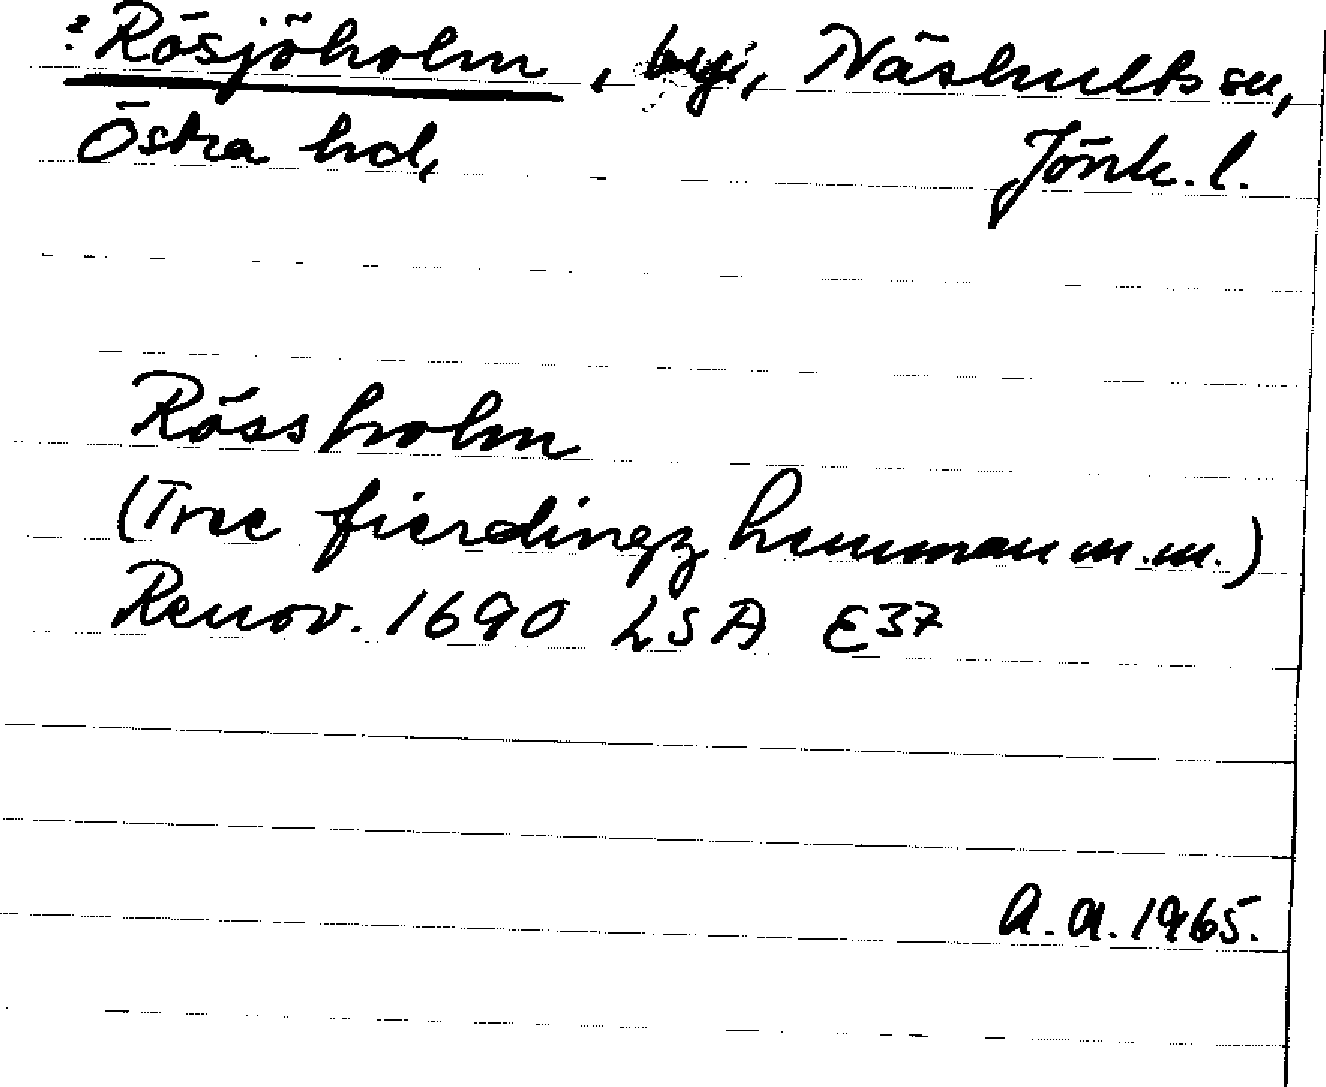 : Rösjöholm, by i, Näshults sn,
Östra hd, Jönk. l.
Rössholm
(Tree fierdingz hemman m.m.)
Renov. 1690 LSA E37
A.A. 1965.